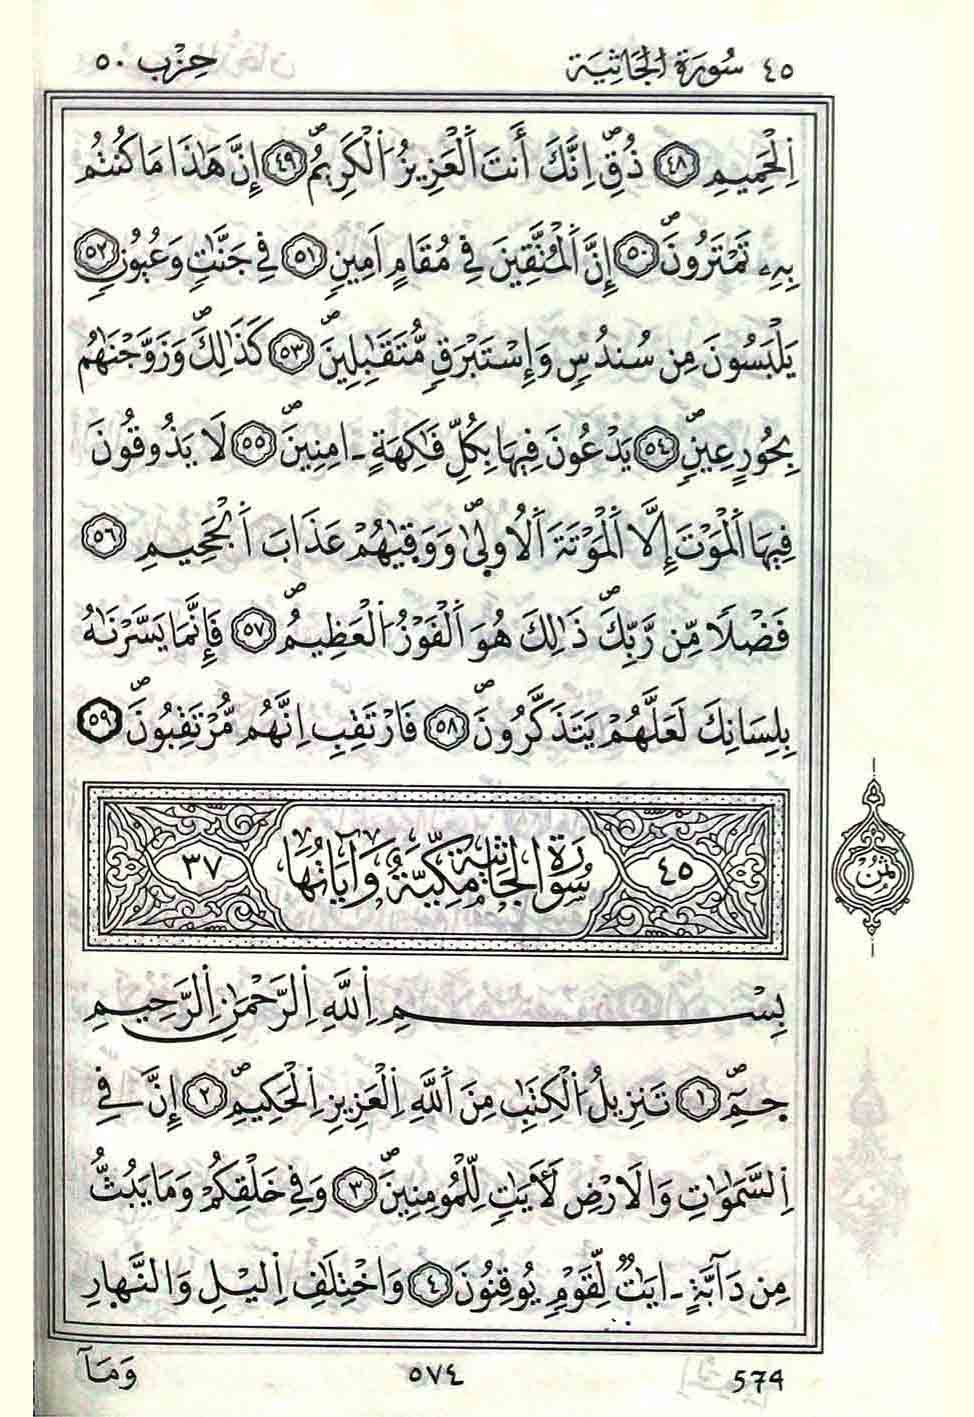 ٤٥ سُورَةُ الْجَاثِيَة حِزْب ٥٠
اِ۬لْحَمِيمِ ٤٨ ذُقِ اِنَّكَ أَنتَ اَ۬لْعَزِيزُ اُ۬لْكَرِيمُۖ ٤٩ إِنَّ هَٰذَا مَا كُنتُم
بِهِۦ تَمْتَرُونَۖ ٥٠ إِنَّ اَ۬لْمُتَّقِينَ فِي مُقَامٍ اَمِينٖ ٥١ فِي جَنَّٰتٖ وَعُيُونٖ ٥٢
يَلْبَسُونَ مِن سُندُسٖ وَإِسْتَبْرَقٖ مُّتَقَٰبِلِينَۖ ٥٣ كَذَٰلِكَۖ وَزَوَّجْنَٰهُم
بِحُورٍ عِينٖ ٥٤ يَدْعُونَ فِيهَا بِكُلِّ فَٰكِهَةٍ ـ امِنِينَۖ ٥٥ لَا يَذُوقُونَ
فِيهَا اَ۬لْمَوْتَ إِلَّا اَ۬لْمَوْتَةَ اَ۬لُاولۭيٰۖ وَوَقۭيٰهُمْ عَذَابَ اَ۬لْجَحِيمِ ٥٦
فَضْلاٗ مِّن رَّبِّكَۖ ذَٰلِكَ هُوَ اَ۬لْفَوْزُ اُ۬لْعَظِيمُۖ ٥٧ فَإِنَّمَا يَسَّرْنَٰهُ
بِلِسَانِكَ لَعَلَّهُمْ يَتَذَكَّرُونَۖ ٥٨ فَارْتَقِبِ اِنَّهُم مُّرْتَقِبُونَۖ ٥٩
٤٥ سُورَةُ الْجَاثِيَةِ مَكِّيَّةٌ وَآيَاتُهَا ٣٧
ثُمُنْ
بِسْمِ اِ۬للَّهِ اِ۬لرَّحْمَٰنِ اِ۬لرَّحِيمِ
حمِٓۖ ١ تَنزِيلُ اُ۬لْكِتَٰبِ مِنَ اَ۬للَّهِ اِ۬لْعَزِيزِ اِ۬لْحَكِيمِۖ ٢ إِنَّ فِي
اِ۬لسَّمَٰوَٰتِ وَالَارْضِ لَأٓيَٰتٖ لِّلْمُومِنِينَۖ ٣ وَفِي خَلْقِكُمْ وَمَا يَبُثُّ
مِن دَآبَّةٍ ـ ايَٰتٞ لِّقَوْمٖ يُوقِنُونَ ٤ وَاخْتِلَٰفِ اِ۬ليْلِ وَالنَّهارِ
وَمَآ ٥٧٤ 574